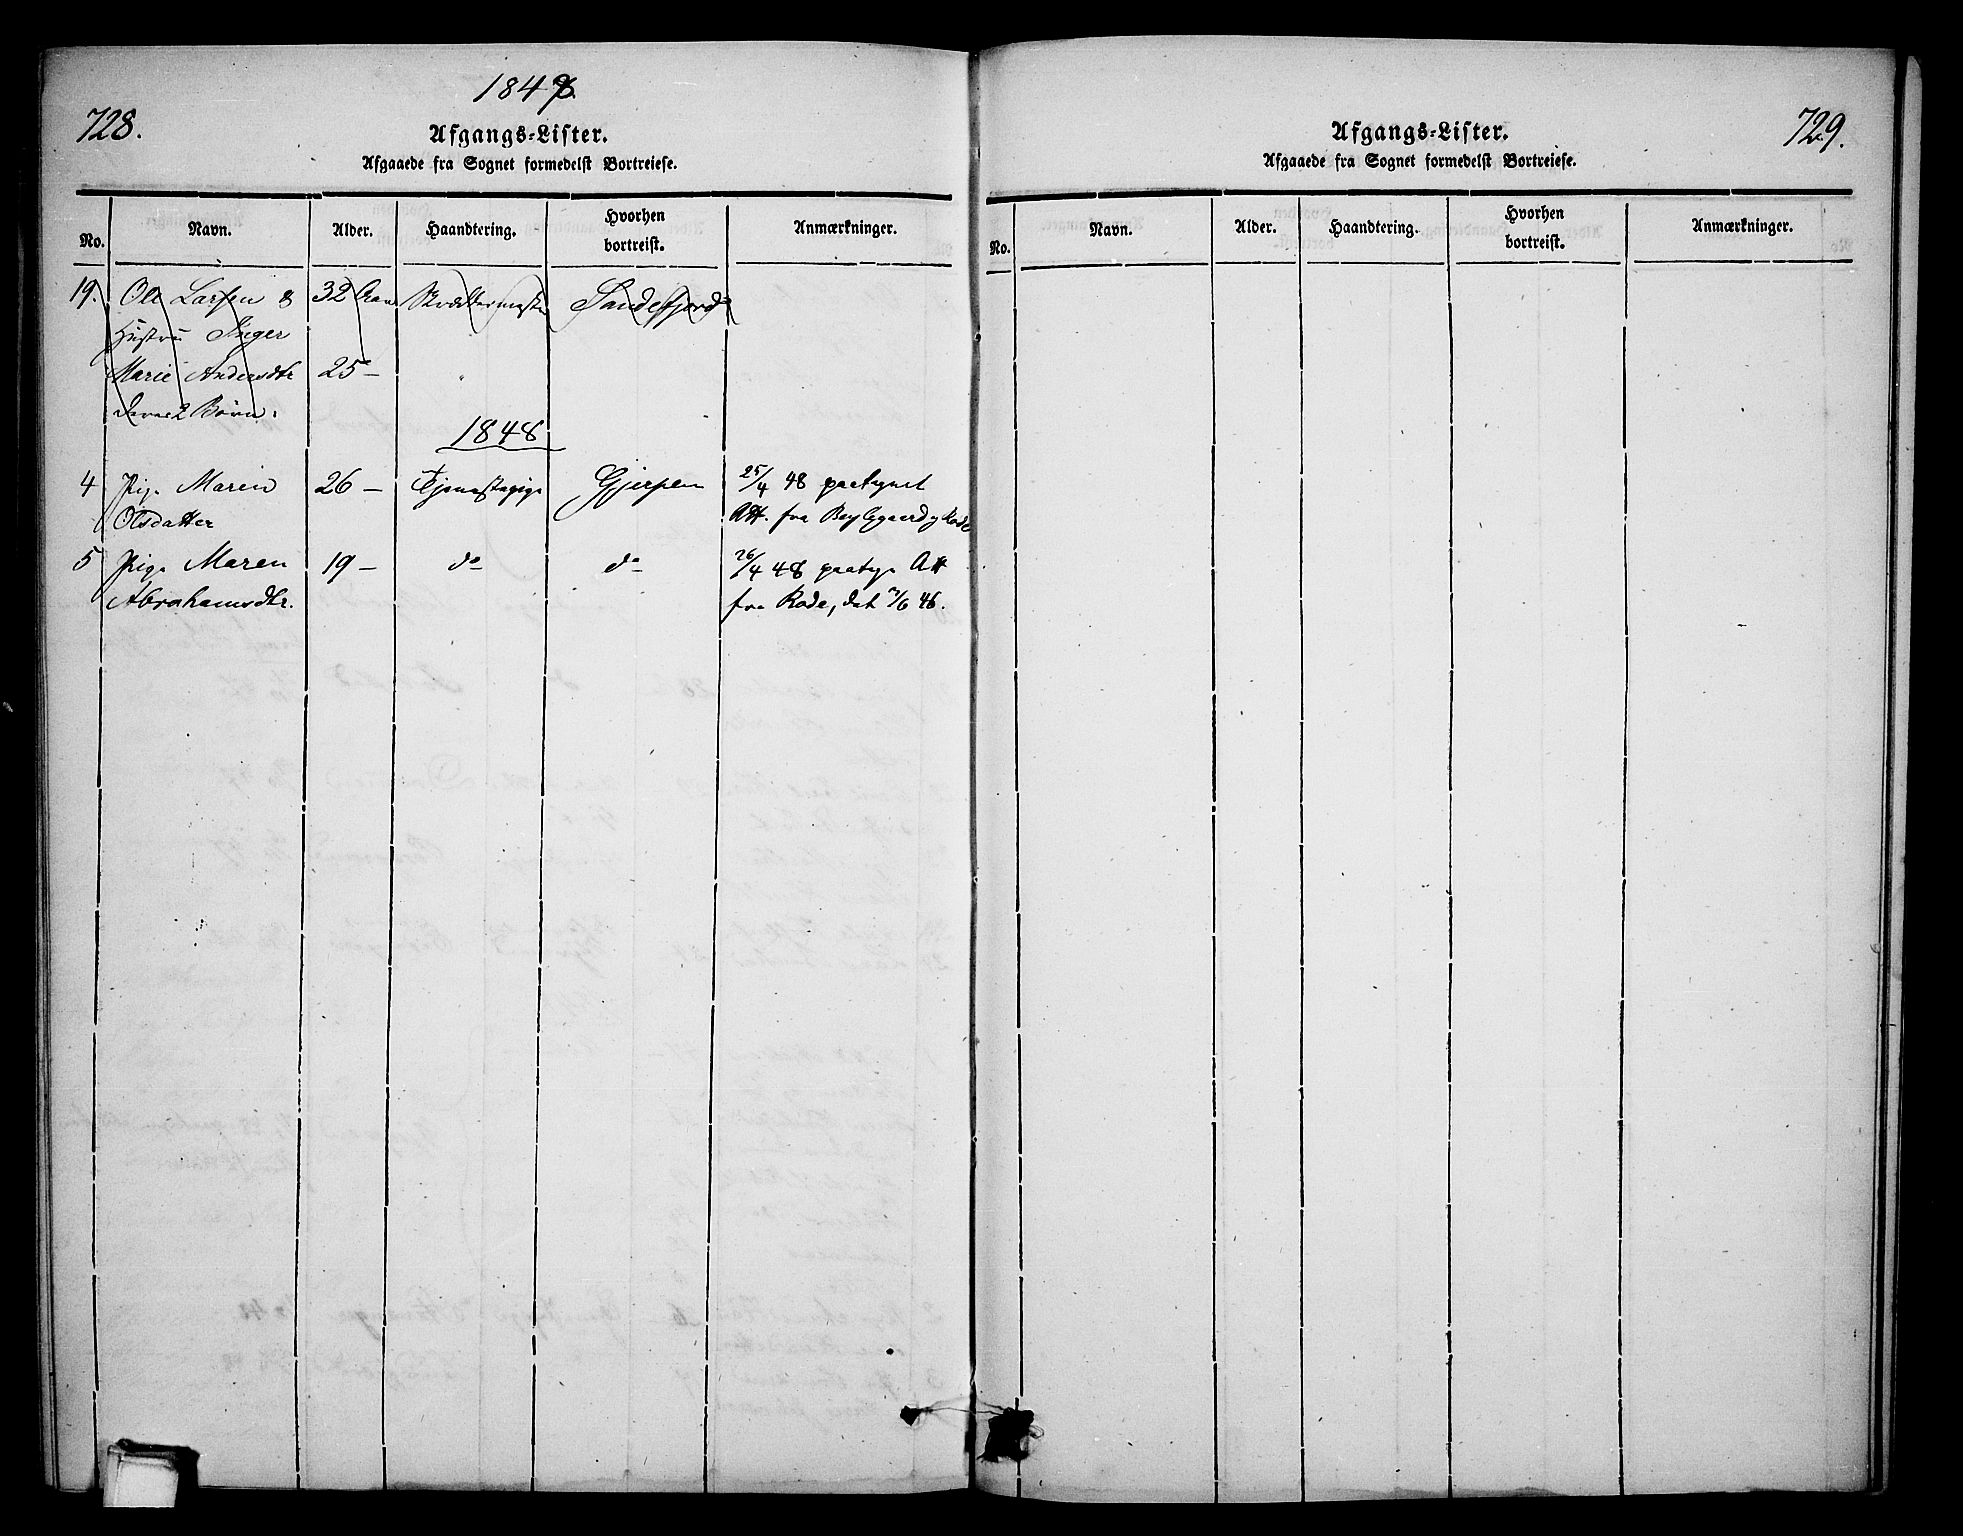 728.
1848
Afgangs-Lister.
Afgaaede fra Sognet formedelst Bortreiese.
No. Navn. Alder. Haandtering. Hvorhen bortreist. Anmærkninger.
19. Ole Larsen & 32 Aar Sandefjord
Hustru Inger
Marie Andersdtr 25 –
deres 2 Børn.
1848
4 Pige Maren 26 – Tjenestepige Gjerpen 25/4 48 paategnet
Olsdatter Att. fra
5 Pige Maren 19 – do do 26/4 48 paateg. Att
Abrahamsdtr. fra Rode, dat 46.
729.
Afgangs-Lister.
Afgaaede fra Sognet formedelst Bortreiese.
No. Navn. Alder. Haandtering. Hvorhen bortreist. Anmærkninger.